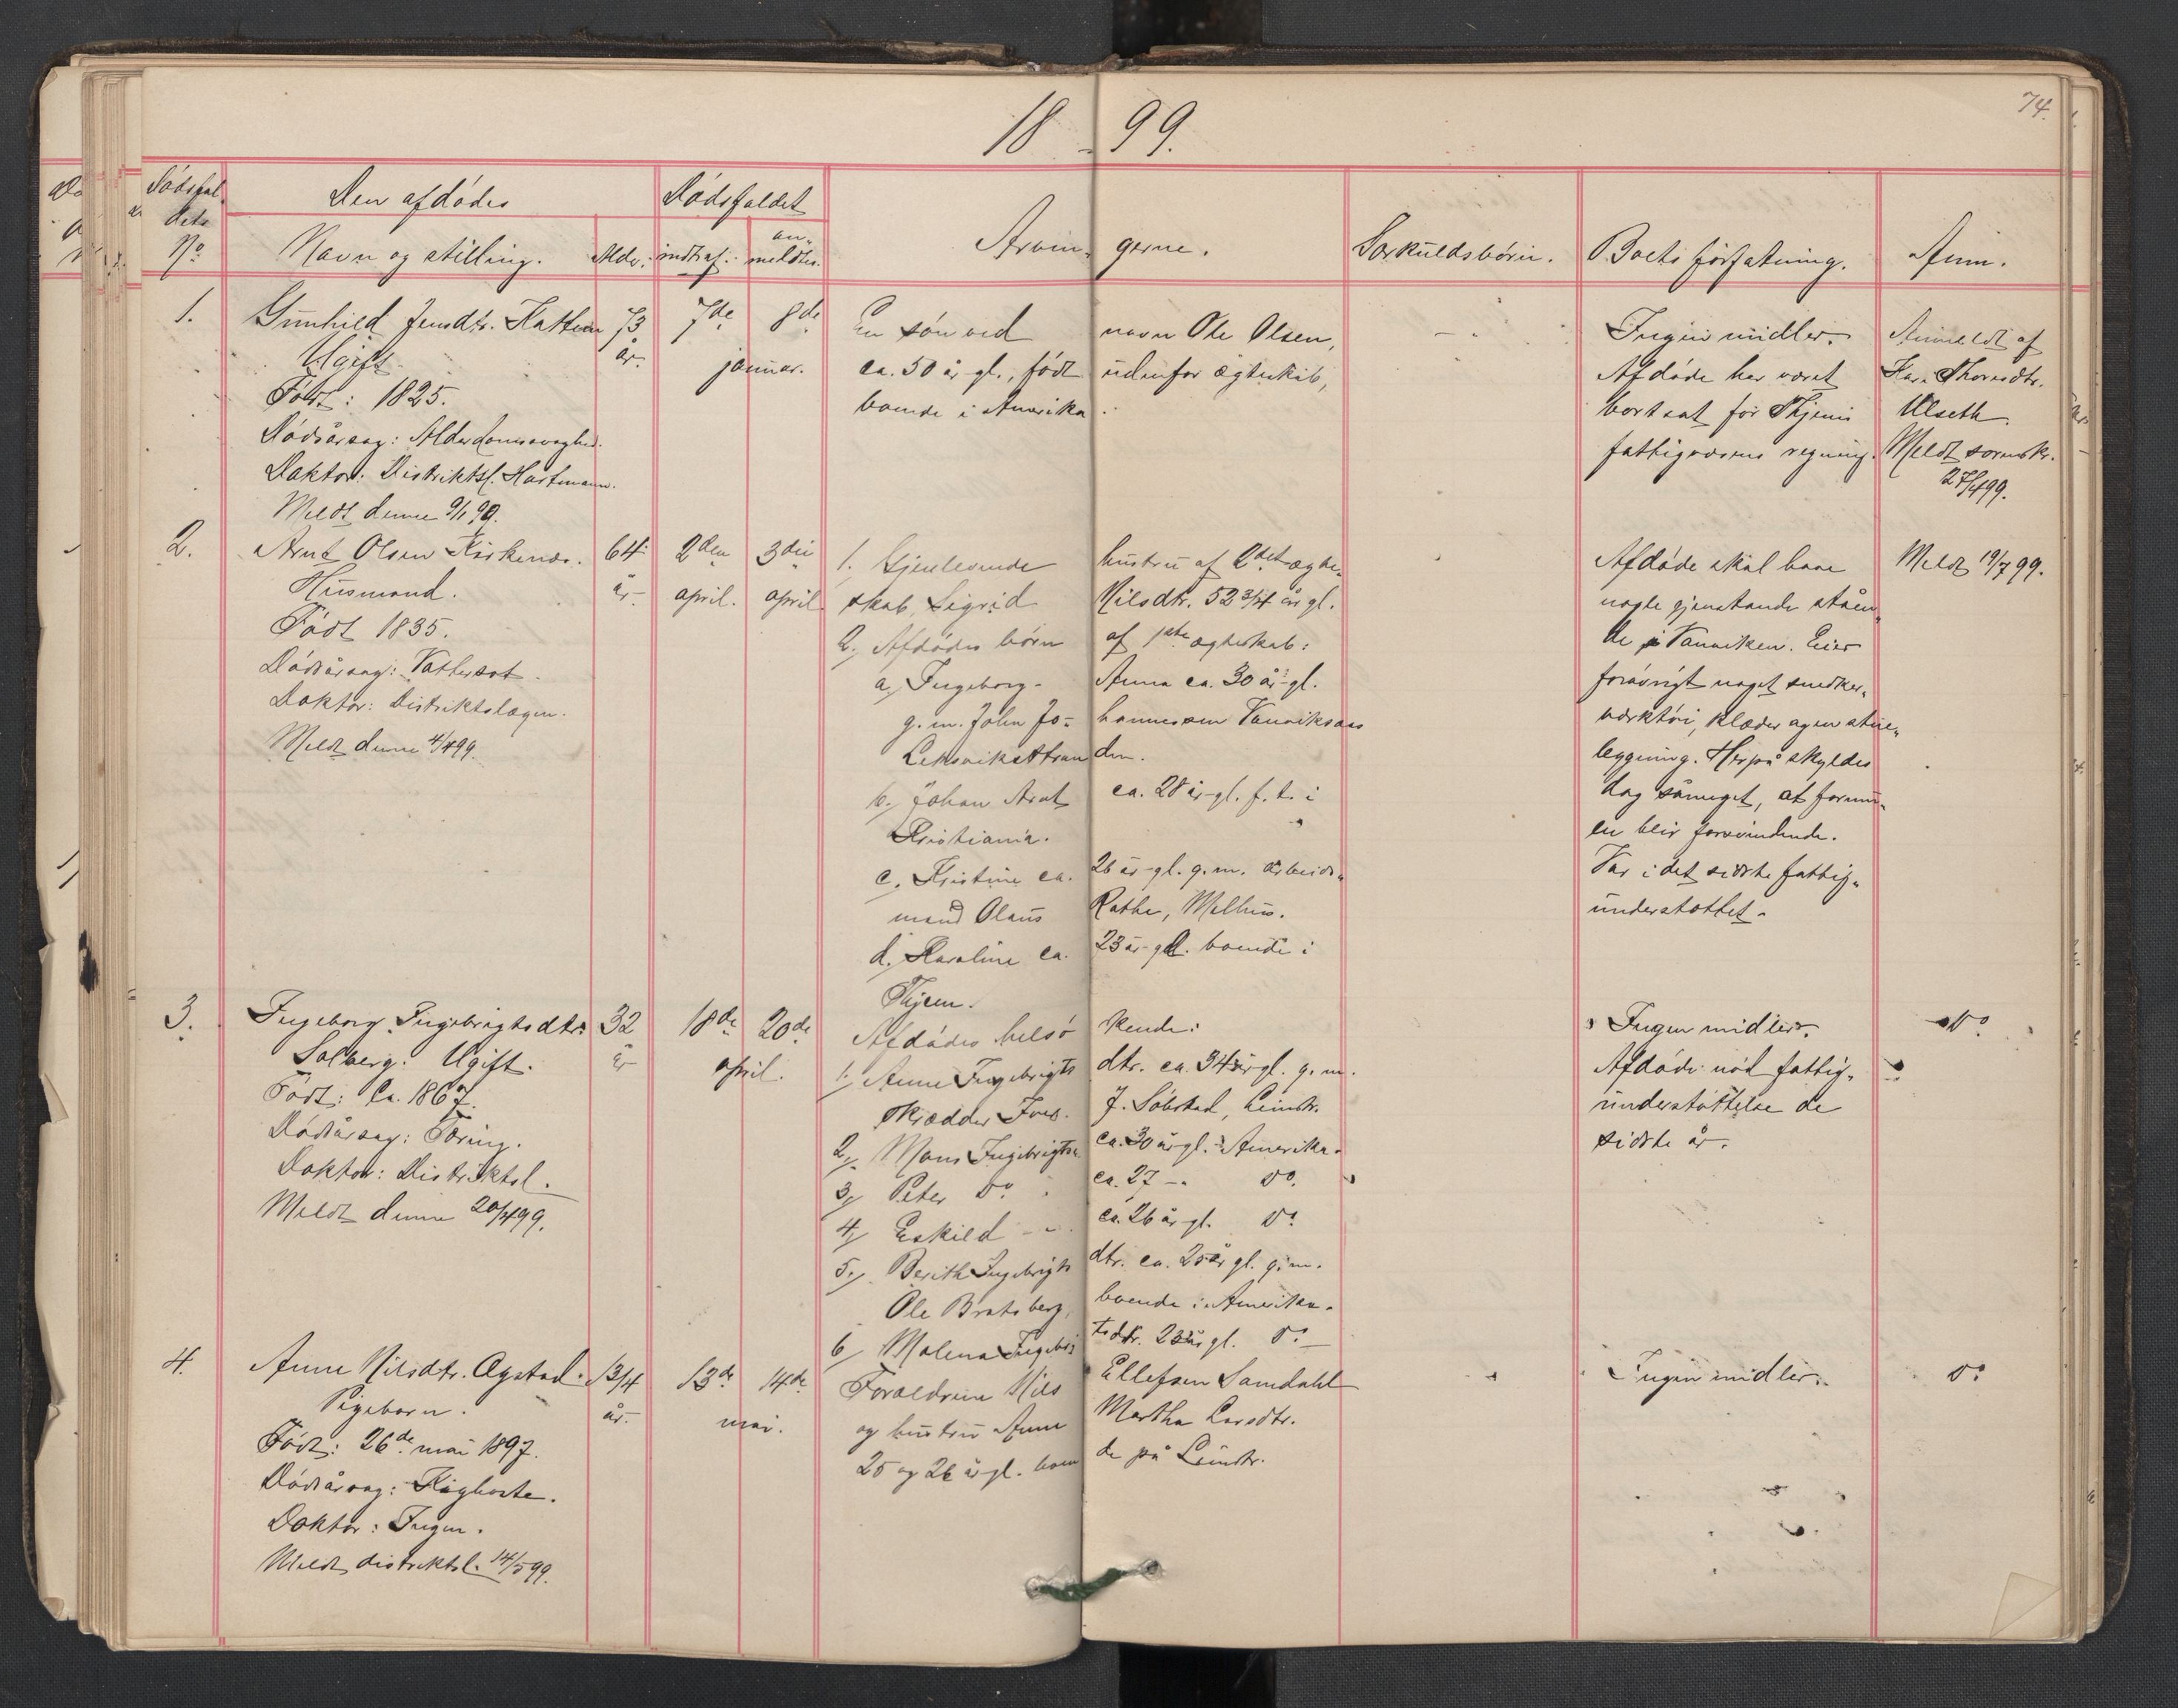 74.
18 99.
Dødsfal-
dets
No
Den afdødes
Navn og stilling.
Alder.
Dødsfaldet
indtraf.
an-
meldtes.
Arvin- gerne.
Særkuldsbørn.
Boets forfatning.
Anm.
1.
Gunhild Jensdtr. Kattem
Ugift.
Født: 1825.
Dødsårsag: Alderdomssvaghed.
Doktor: Distriktsl. Hartmann.
Meldt denne 9/1 99.
73
år.
7de 8de
januar.
En søn ved navn Ole Olsen,
ca. 50 år gl., født udenfor ægteskab,
boende i Amerika.
Ingen midler.
Afdøde har været
bortsat for Thjems
fattigvæsens regning.
Anmeldt af
Kari Thorsdtr.
Ulseth.
Meldt sorenskr.
27/4 99.
2.
Arnt Olsen Kirkenes.
Husmand.
Født 1835.
Dødsårsag: Vattersot.
Doktor: Distriktslægen.
Meldt denne 4/4 99.
64
år.
2den 3die
april. april.
1. Gjenlevende hustru af 2det ægte-
skab Sigrid Nilsdtr. 52 3/4 år gl.
2. Afdødes børn af 1ste ægteskab:
a, Ingeborg Anna ca. 30 år gl.
g. m. John Jo- hannessen Vanviksaas
Leksvikstran den.
b, Johan Arnt ca. 28 år gl. f. t. i
Kristiania.
c, Kristine ca. 26 år gl. g. m. arbeids-
mand Olaus Rathe, Melhus.
d, Karoline ca. 23 år gl. boende i
Thjem.
Afdøde skal have
nogle gjenstande ståen-
de i Vanviken. Eier
forøvrigt noget snedker-
værktøi, klæder og en stue-
leggning. Herpå skyldes
dog såmeget, at formu-
en blir forsvindende.
Var i det sidste fattig-
understøttet.
Meldt 19/7 99.
3.
Ingeborg Ingebrigtsdtr.
Solberg. Ugift.
Født: Ca. 1867.
Dødsårsag: Tæring.
Doktor: Distriktsl.
Meldt denne 20/4 99.
32
år
18de 20de
april.
Afdødes helsø kende:
1, Anne Ingebrigts dtr. ca. 34 år gl. g. m.
skrædder Ivar J. Solstad, Leinstr.
2, Mons Ingebrigtsen ca. 30 år gl. Amerika.
3, Peter Do ca. 27 - " Do.
4, Eskild - " ca. 26 år gl. Do
5, Berith Ingebrigts dtr. ca. 25 år gl. g. m.
Ole Bratsberg, boende i Amerika.
6, Malena Ingebri tsdtr. 23 år gl. Do -
Ingen midler.
Afdøde nød fattig-
understøttelse de
sidste år.
Do
4.
Anne Nilsdtr. Øgstad.
Pigebarn.
Født: 26de mai 1897.
Dødsårsag: Kighoste.
Doktor: Ingen.
Meldt distriktsl. 14/5 99.
1 3/4
år.
13de 14de
mai.
Forældrene Nils Ellefsen Samdahl
og hustru Anne Martha Larsdtr.
25 og 26 år gl. boen de på Leinstr.
Ingen midler.
Do